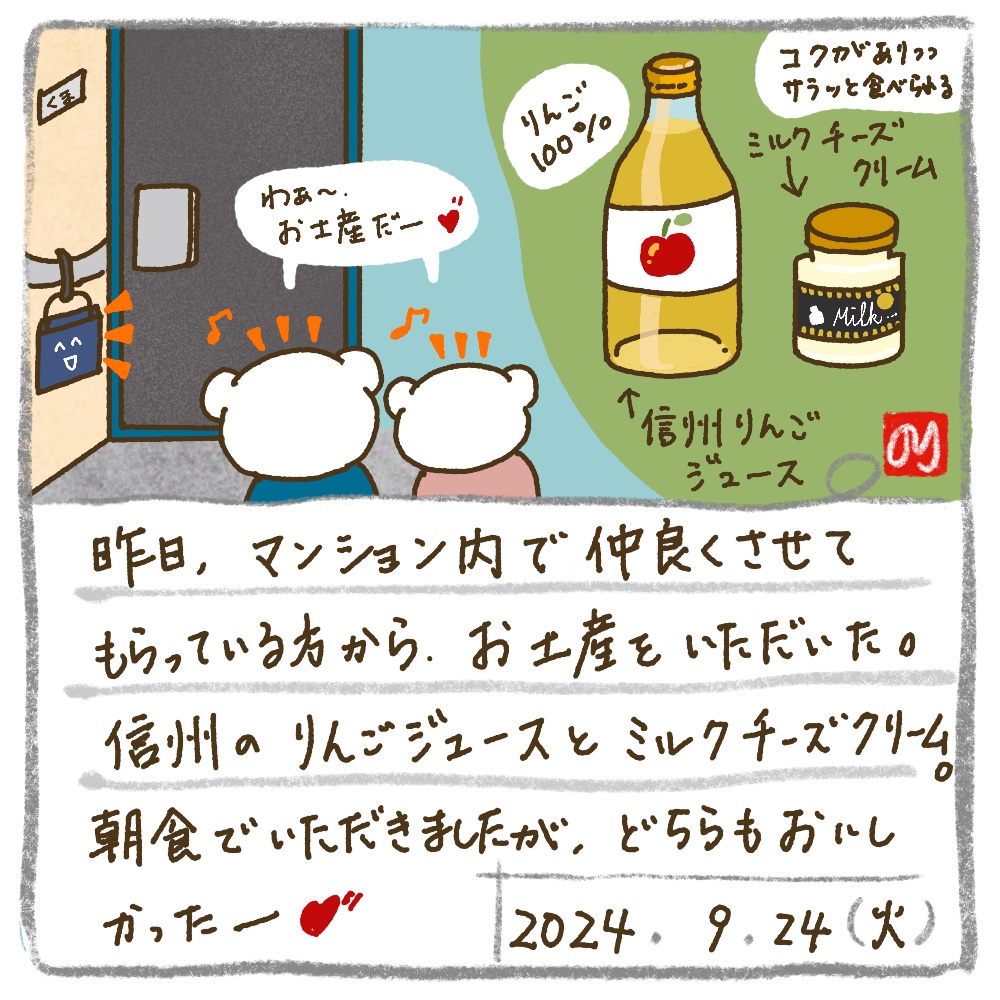 くま
わぁ〜。
お土産だー
りんご
100%
コクがありつつ
サラッと食べられる
ミルクチーズ
クリーム
Milk...
信州りんご
ジュース
昨日、マンション内で仲良くさせて
もらっている方から、お土産をいただいた。
信州のりんごジュースとミルクチーズクリーム。
朝食でいただきましたが、どちらもおいし
かったー
2024.9.24(火)